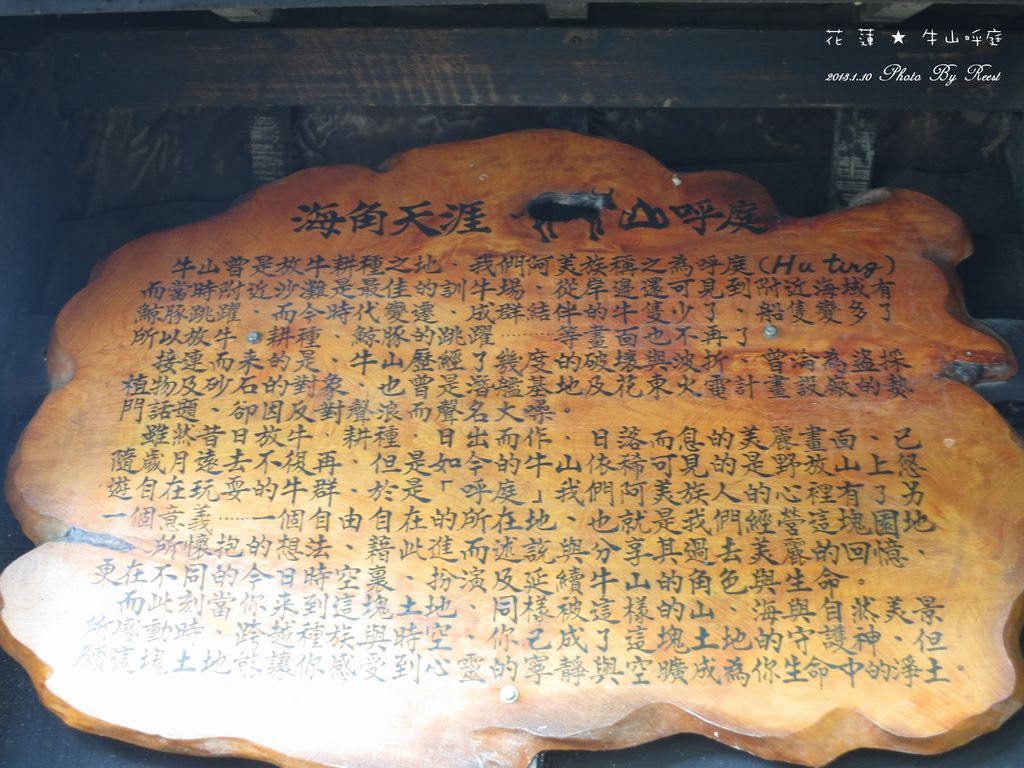 花蓮★牛山呼庭
2013.1.10 Photo By Reest
海角天涯 山呼庭
牛山曾是放牛耕種之地、我們阿美族稱之為呼庭(Hu ting)
而當時附近沙灘是最佳的訓牛場、從岸邊還可見到附近海域有
鯨豚跳躍、而今時代變遷、成群結伴的牛隻少了、船隻變多了
所以放牛、耕種、鯨豚的跳躍……等畫面也不再了
接連而來的是、牛山歷經了幾度的破壞與波折、曾淪為盜採
植物及砂石的對象、也曾是潛艦基地及花東火電計畫設廠的熱
門話題、卻因反對聲浪而聲名大噪。
雖然昔日放牛、耕種、日出而作、日落而息的美麗畫面、已
隨歲月遠去不復再、但是如今的牛山依稀可見的是野放山上悠
遊自在玩耍的牛群、於是「呼庭」我們阿美族人的心裡有了另
一個意義……一個自由自在的所在地、也就是我們經營這塊園地
所懷抱的想法、藉此進而述說與分享其過去美麗的回憶、
更在不同的今日時空裏、扮演及延續牛山的角色與生命。
而此刻當你來到這塊土地、同樣被這樣的山、海與自然美景
所感動時、跨越種族與時空、你已成了這塊土地的守護神、但
願這塊土地能讓你感受到心靈的寧靜與空曠成為你生命中的淨土。